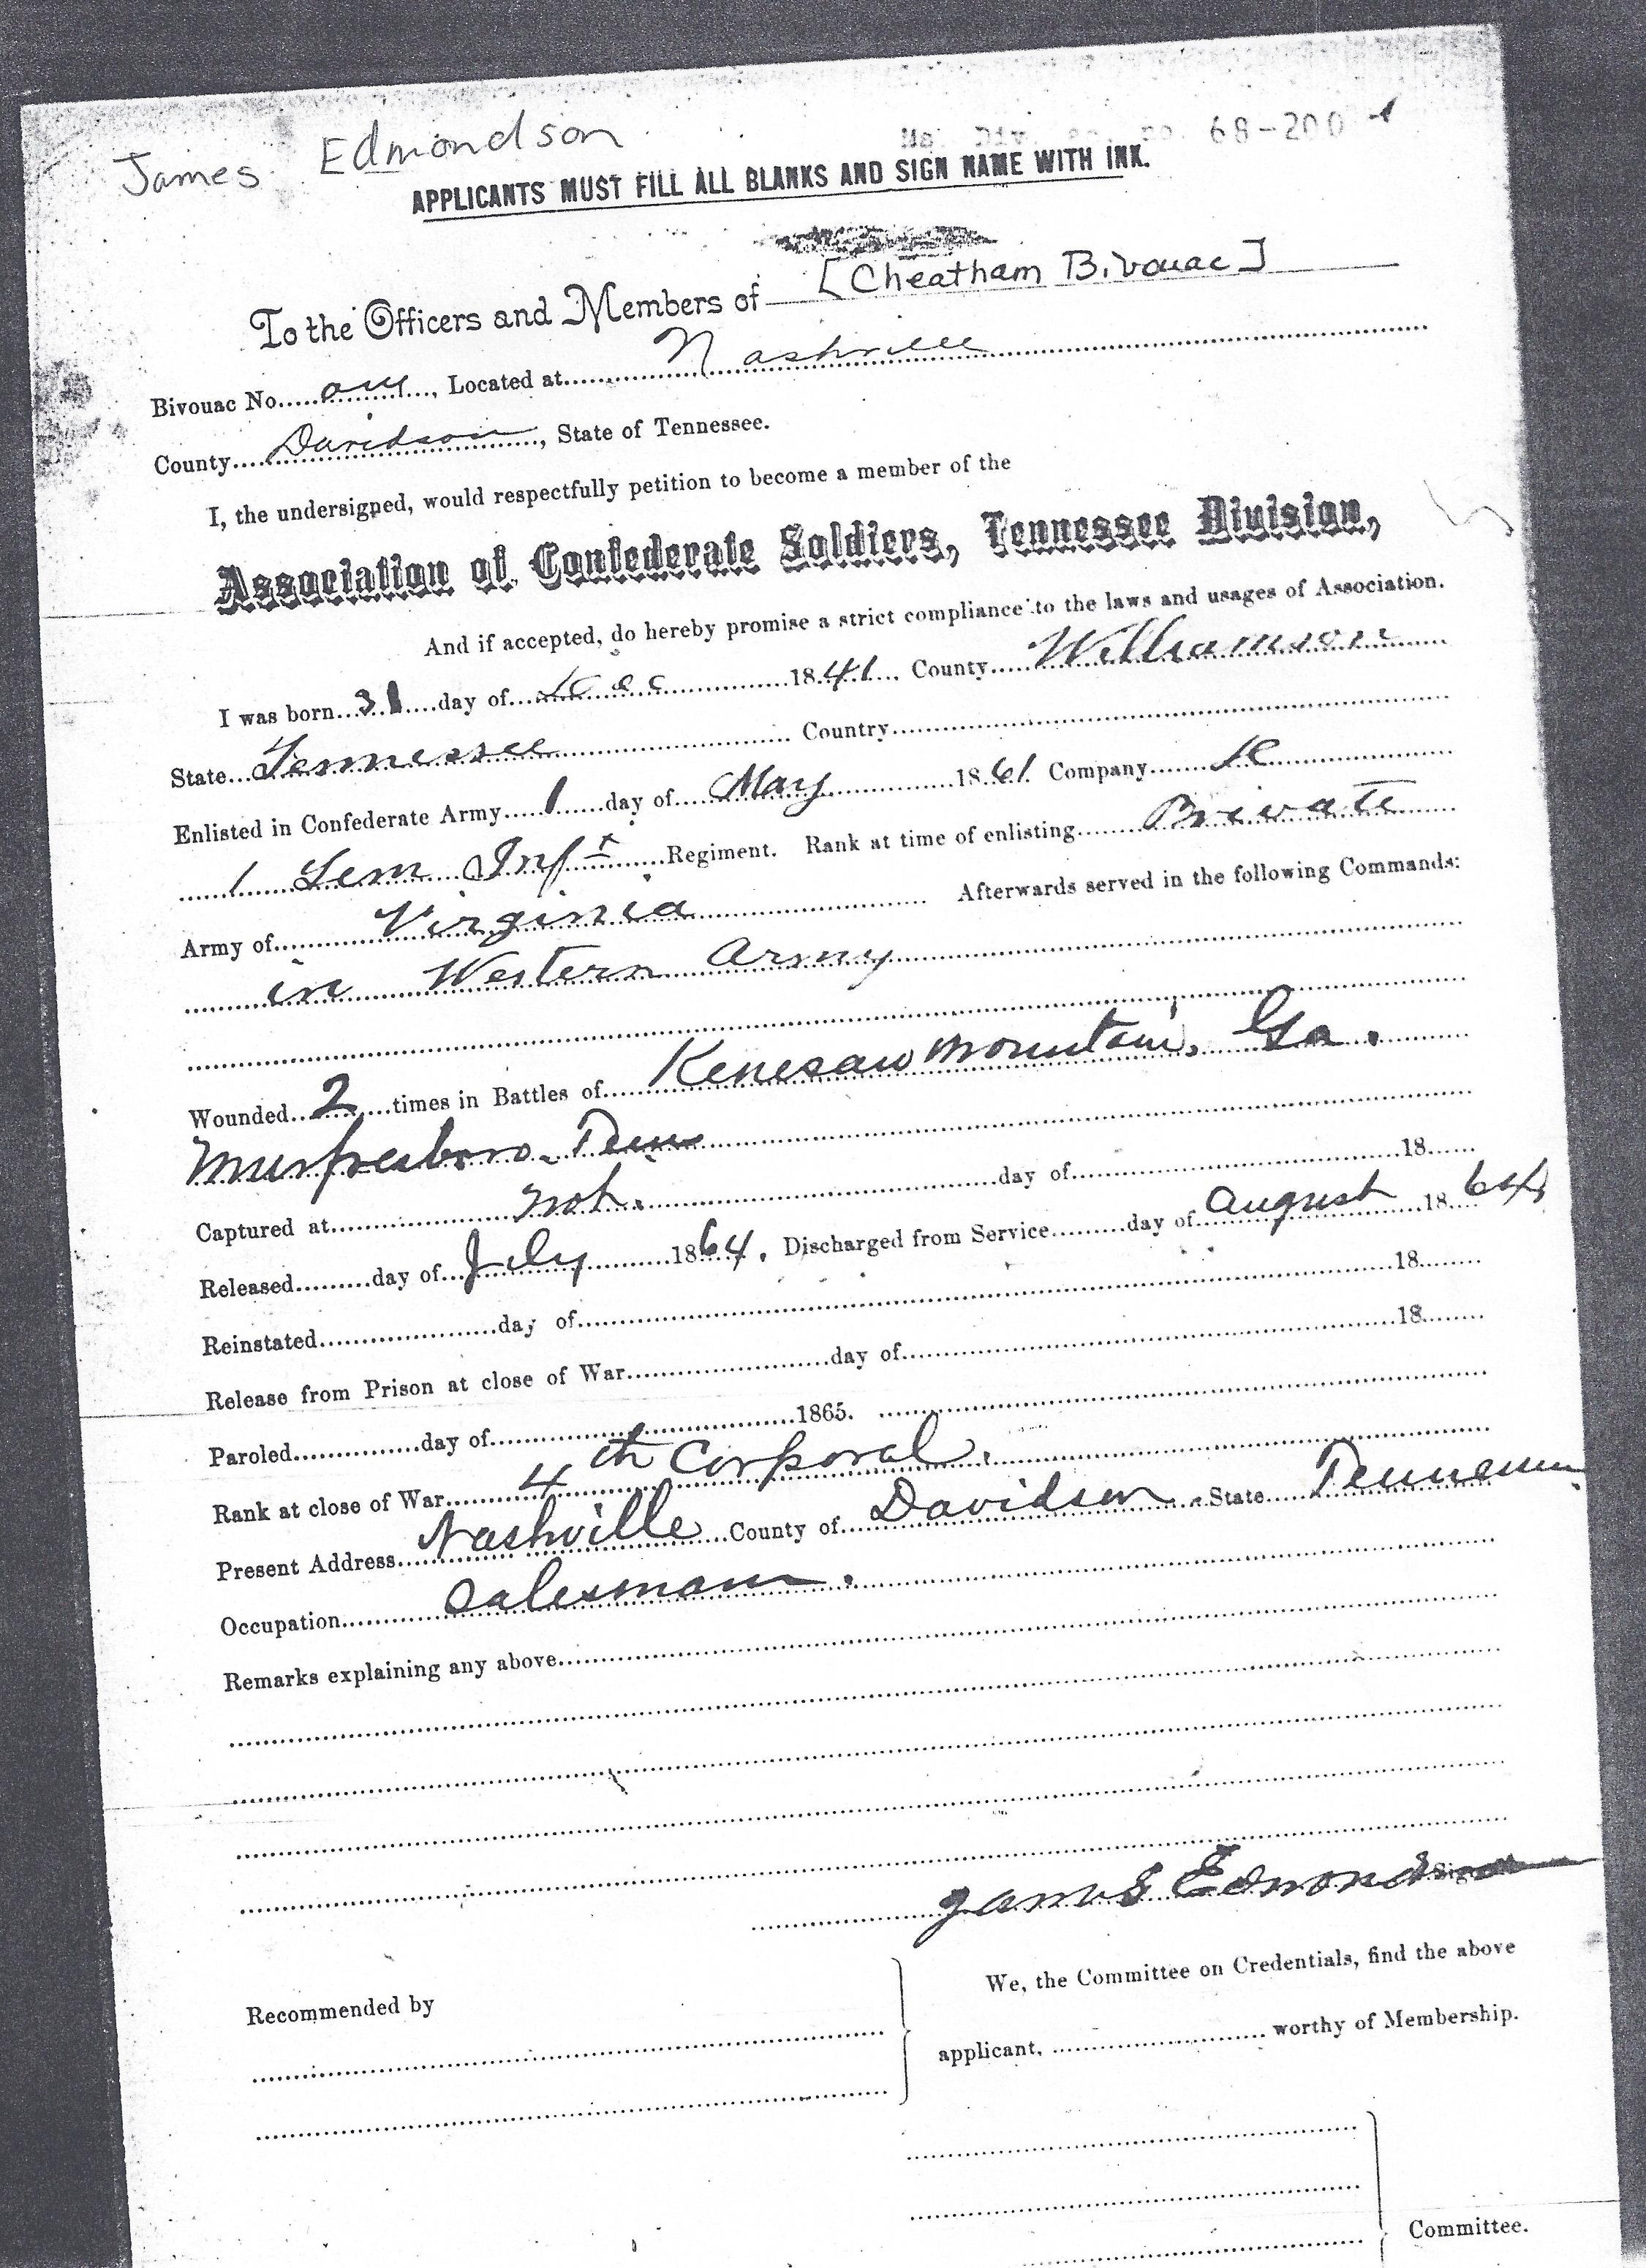 James Edmondson
68-200
APPLICANTS MUST FILL ALL BLANKS AND SIGN NAME WITH INK.
To the Officers and Members of [Cheatham Bivouac]
Bivouac No. one, Located at Nashville
County Davidson, State of Tennessee.
I, the undersigned, would respectfully petition to become a member of the
Association of Confederate Soldiers, Tennessee Division,
And if accepted, do hereby promise a strict compliance to the laws and usages of Association.
I was born 31 day of Dec 1841. County Williamson
State Tennessee Country
Enlisted in Confederate Army 1 day of May 1861. Company
1 Tenn Inft Regiment. Rank at time of enlisting Private
Army of Virginia Afterwards served in the following Commands:
in Western Army
Wounded 2 times in Battles of Kenesaw Mountain, Ga.
Murfresboro. Tenn
Captured at not. day of 18
Released day of July 1864. Discharged from Service day of August 1864
Reinstated day of 18
Release from Prison at close of War day of 18
Paroled day of 1865.
Rank at close of War 4th Corporal.
Present Address Nashville County of Davidson State Tennessee
Occupation Salesman.
Remarks explaining any above
James Edmondson
We, the Committee on Credentials, find the above
Recommended by
applicant, worthy of Membership.
Committee.